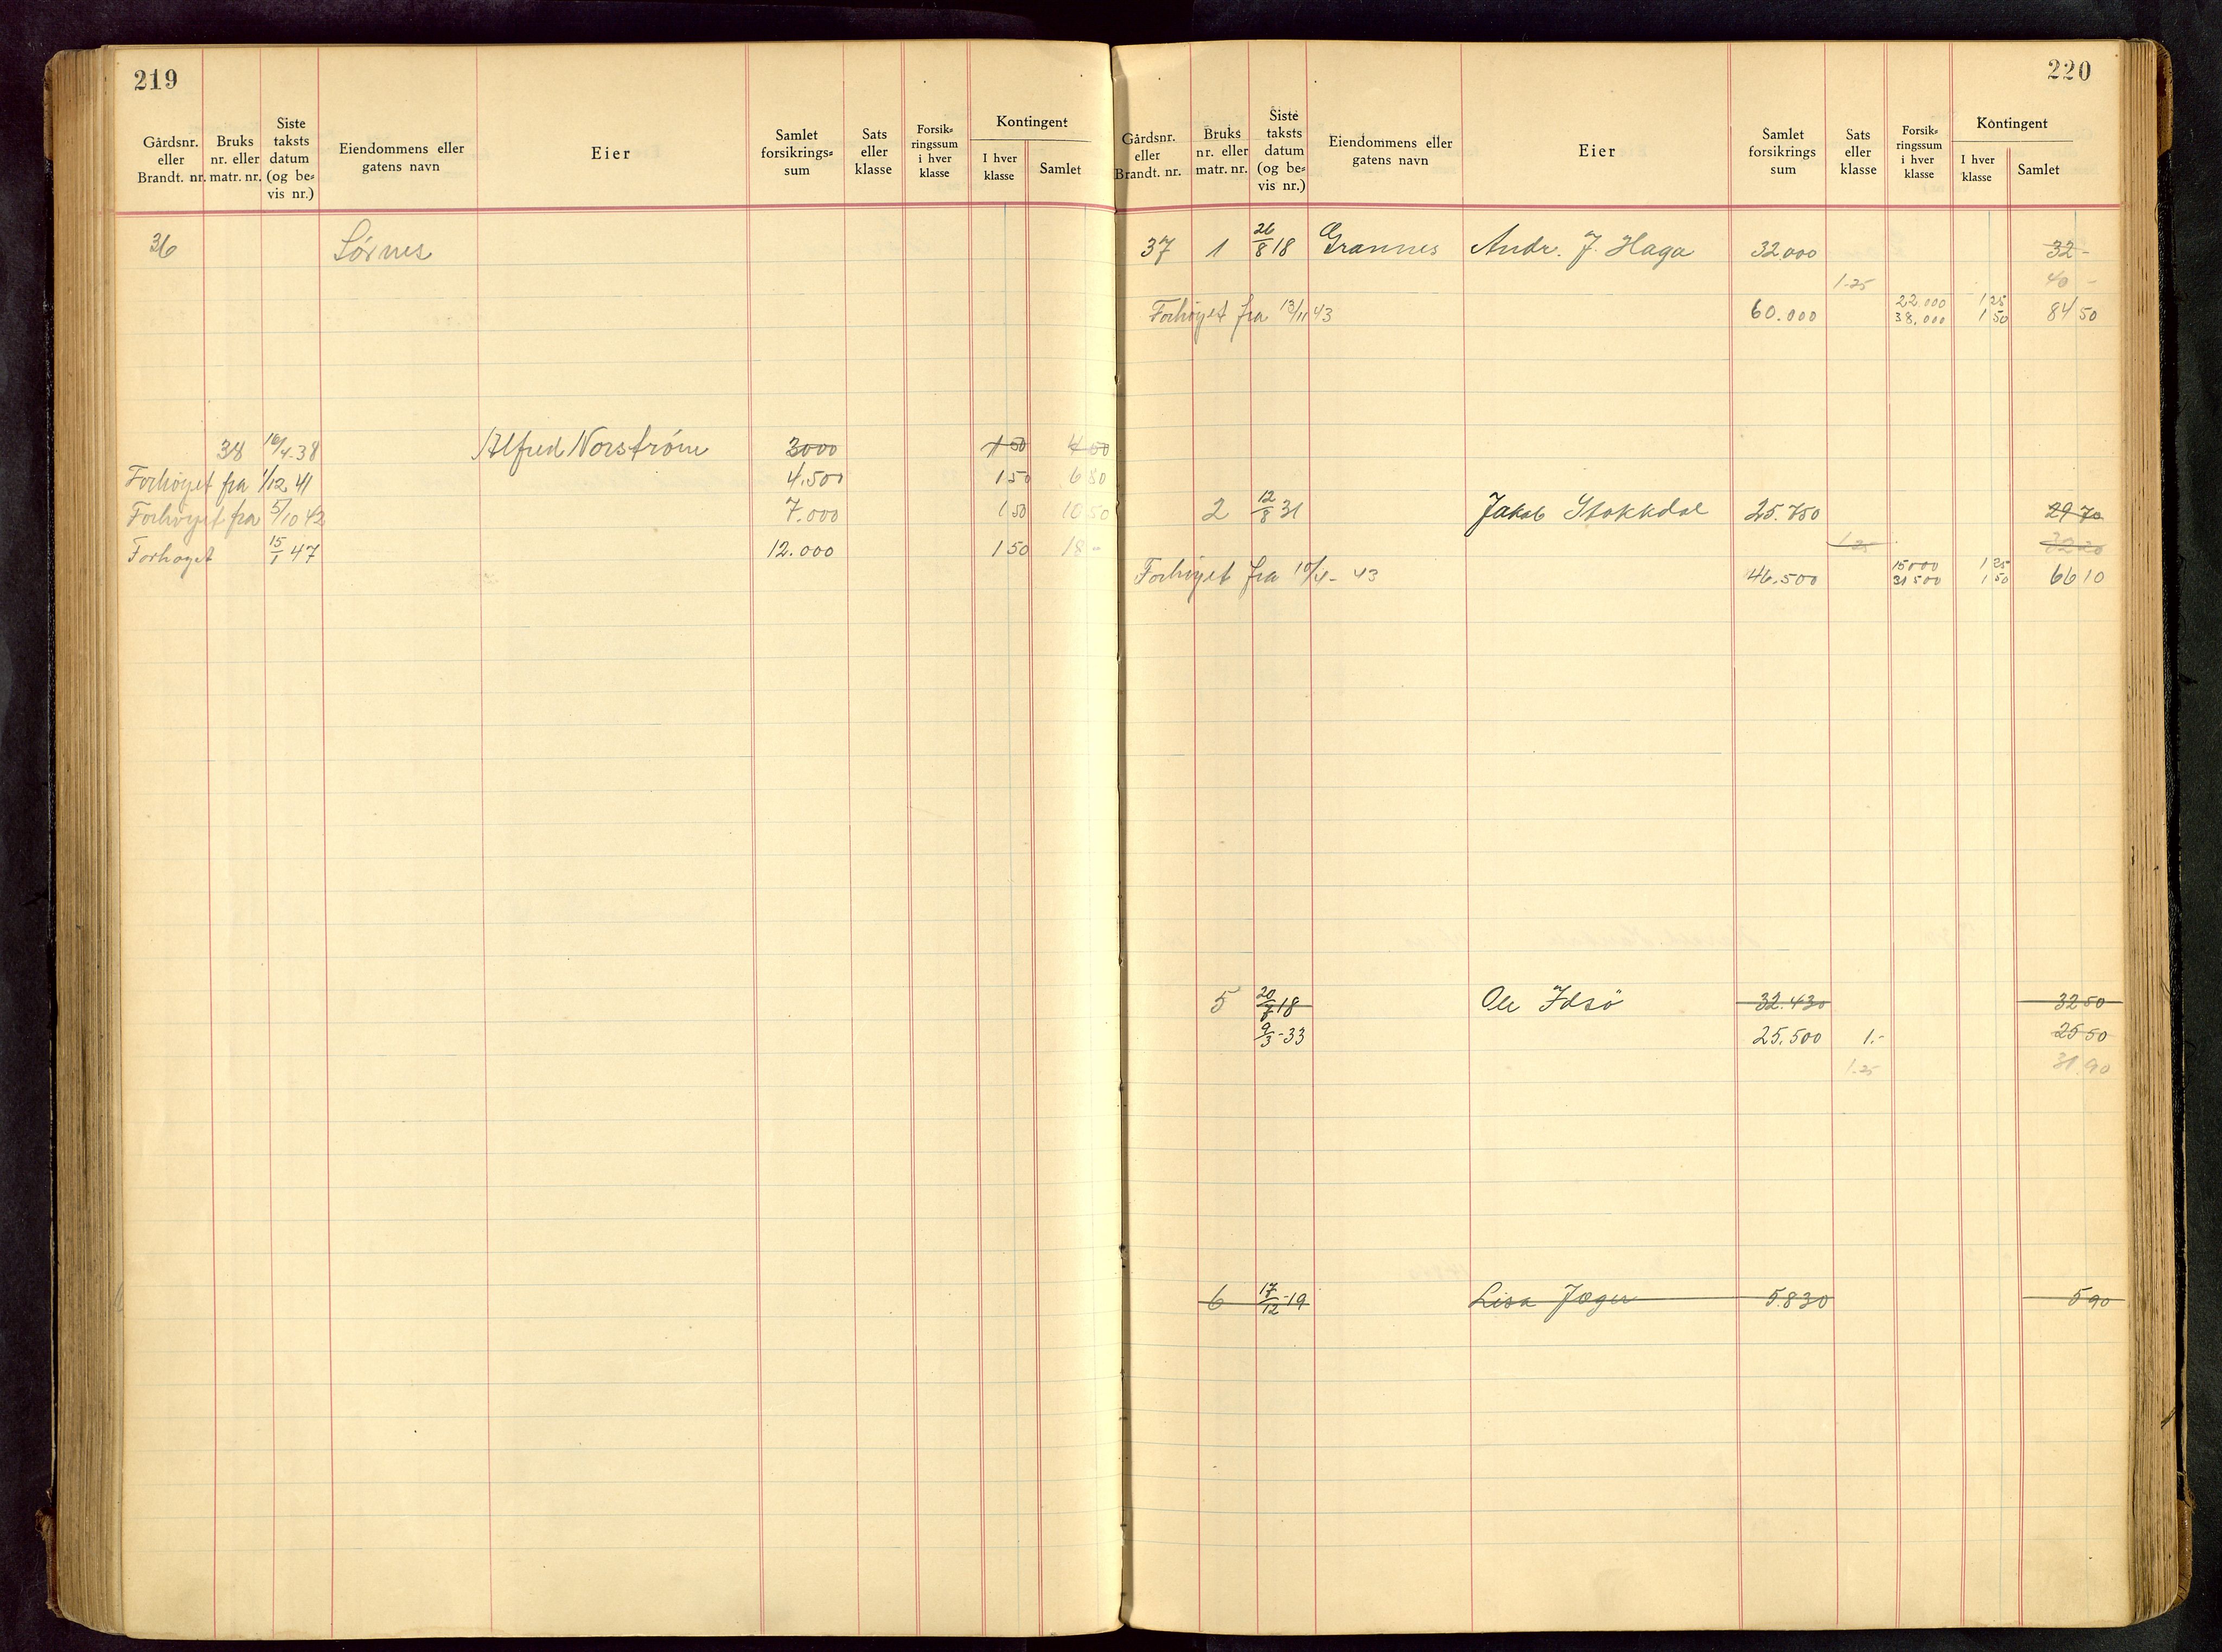 219
Gårdsnr. eller Brandt. nr. Bruks nr. eller matr. nr. Siste taksts datum (og bevis nr.) Eiendommens eller gatens navn Eier Samlet forsikrings=sum Sats eller klasse Forsik=ringssum i hver klasse Kontingent I hver klasse Samlet
36 Sörnes
38 16/4-38 Alfred Norström 3000 1 50 4 50
Forhöyet fra 1/12 41 4.500 1 50 6 80
Forhöyet fra 5/10 42 7.000 1 50 10 50
Forhøyet 15/1 47 12.000 1 50 18 -
220
Gårdsnr. eller Brandt. nr. Bruks nr. eller matr. nr. Siste taksts datum (og be=vis nr.) Eiendommens eller gatens navn Eier Samlet forsikrings sum Sats eller klasse Forsik=ringssum i hver klasse Kontingent I hver klasse Samlet
37 1 26/8 18 Grannes Andr. J. Haga 32.000 32 -
1.25 40 -
22.000 1 25
Forhöyet fra 13/11 43 60.000 38.000 1 50 84 50
2 12/8 31 Jakob Stokkdal 25.750 29 70
1.25 32 20
15000 1 25
Forhöyet fra 10/4- 43 46.500 31500 1 50 66 10
5 20/7 18 Ole Idsö 32.430 32 50
9/3-33 25.500 1.- 25 50
1.25 31.90
6 17/12-19 Lisa Jæger 5.830 5 90